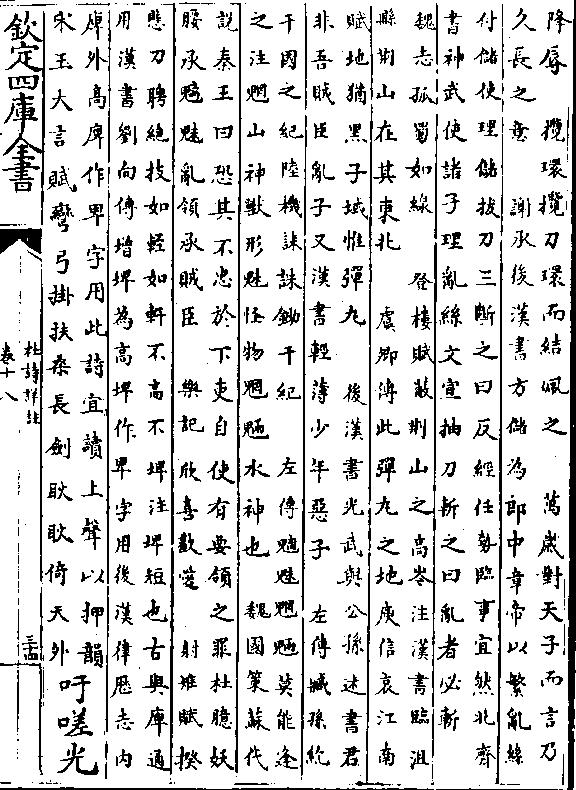 降辱　攬環攬刀環而結佩之　萬歲對天子而言乃
久長之意　謝承後漢書方儲為郎中章帝以繁亂絲
付儲使理儲拔刀三斷之曰反經任勢臨事宜然北齊
書神武使諸子理亂絲文宣抽刀斬之曰亂者必斬
魏志孤蜀如線　登樓賦蔽荆山之高岑注漢書臨沮
縣荆山在其東北　虞卿傳此彈丸之地庾信哀江南
賦地猶黑子城惟彈丸　後漢書光武與公孫述書君
非吾賊臣亂子又漢書輕薄少年惡子　左傳臧孫紇
干國之紀陸機誄誅鋤干紀　左傳魑魅魍魎莫能逢
之注魍山神獸形魅怪物魍魎水神也　魏國策蘇代
說秦王曰恐其不忠於下吏自使有要領之罪杜臆妖
腰承魑魅亂領承賊臣　樂記欣喜歡愛　射雉賦揆
懸刀騁絶技如輊如軒不高不埤注埤短也古與庳通
用漢書劉向傳增埤為高埤作卑字用後漢律歷志内
庳外高庳作卑字用此詩宜讀上聲以押韻
宋玉大言賦彎弓掛扶桑長劍耿耿倚天外
吁嗟光
欽定四庫全書
杜詩詳註
卷十八
三十四